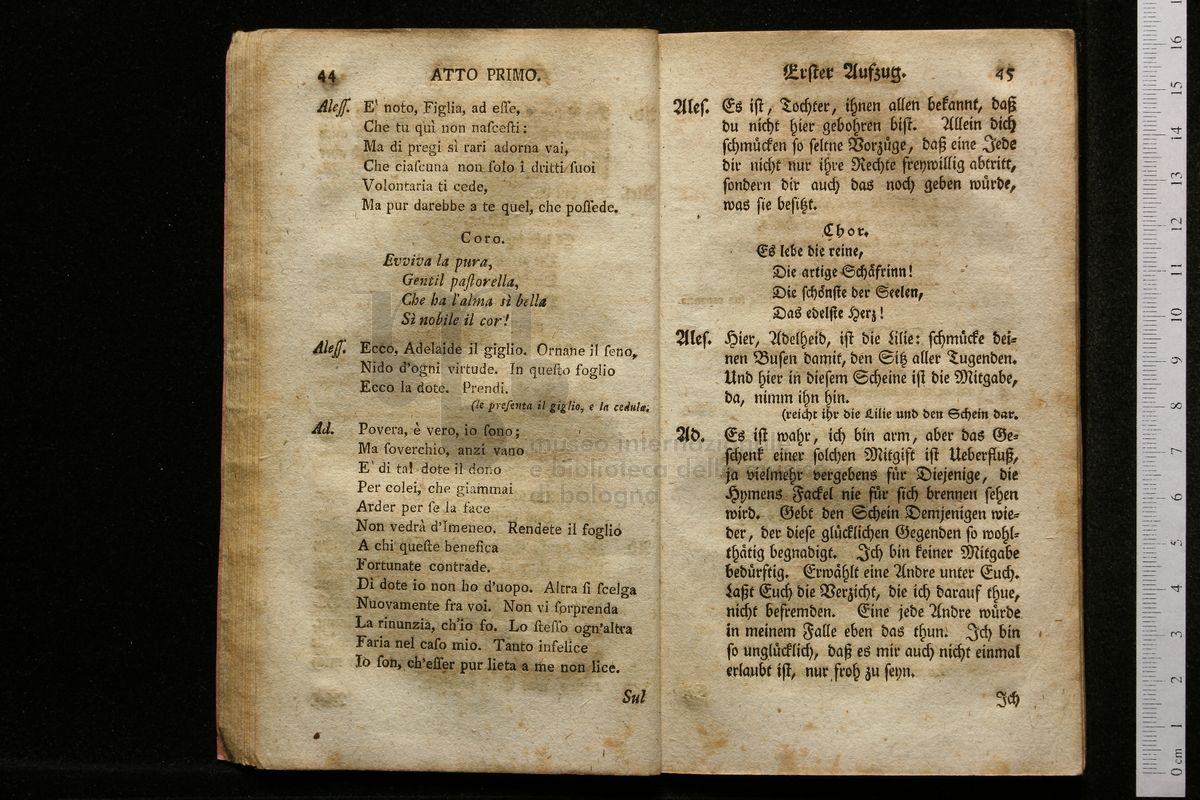 44 ATTO PRIMO.
Aleſſ. E' noto, Figlia, ad eſſe,
Che tu quì non naſceſti:
Ma di pregi sì rari adorna vai,
Che ciaſcuna non ſolo i dritti ſuoi
Volontaria ti cede,
Ma pur darebbe a te quel, che poſſede.
Coro.
Evviva la pura,
Gentil paſtorella,
Che ha l'alma sì bella
Sì nobile il cor!
Aleſſ. Ecco, Adelaide il giglio. Ornane il ſeno,
Nido d'ogni virtude. In queſto foglio
Ecco la dote. Prendi.
(le preſenta il giglio, e la cedula.
Ad. Povera, è vero, io ſono;
Ma ſoverchio, anzi vano
E' di tal dote il dono
Per colei, che giammai
Arder per ſe la face
Non vedrà d'Imeneo. Rendete il foglio
A chi queſte benefica
Fortunate contrade.
Di dote io non ho d'uopo. Altra ſi ſcelga
Nuovamente fra voi. Non vi ſorprenda
La rinunzia, ch'io fo. Lo ſteſſo ogn'altra
Faria nel caſo mio. Tanto infelice
Io ſon, ch'eſſer pur lieta a me non lice.
Sul
Erſter Aufzug. 45
Aleſ. Es iſt, Tochter, ihnen allen bekannt, daß
du nicht hier gebohren biſt. Allein dich
ſchmücken ſo ſeltne Vorzüge, daß eine Jede
dir nicht nur ihre Rechte freywillig abtritt,
ſondern dir auch das noch geben würde,
was ſie beſitzt.
Chor.
Es lebe die reine,
Die artige Schäfrinn!
Die ſchönſte der Seelen,
Das edelſte Herz!
Aleſ. Hier, Adelheid, iſt die Lilie: ſchmücke dei-
nen Buſen damit, den Sitz aller Tugenden.
Und hier in dieſem Scheine iſt die Mitgabe,
da, nimm ihn hin.
(reicht ihr die Lilie und den Schein dar.
Ad. Es iſt wahr, ich bin arm, aber das Ge-
ſchenk einer ſolchen Mitgift iſt Ueberfluß,
ja vielmehr vergebens für Diejenige, die
Hymens Fackel nie für ſich brennen ſehen
wird. Gebt den Schein Demjenigen wie-
der, der dieſe glücklichen Gegenden ſo wohl-
thätig begnadigt. Ich bin keiner Mitgabe
bedürftig. Erwählt eine Andre unter Euch.
Laßt Euch die Verzicht, die ich darauf thue,
nicht befremden. Eine jede Andre würde
in meinem Falle eben das thun. Ich bin
ſo unglücklich, daß es mir auch nicht einmal
erlaubt iſt, nur froh zu ſeyn.
Ich
museo internazionale
e biblioteca della
di bologna
0 cm 1 2 3 4 5 6 7 8 9 10 11 12 13 14 15 16